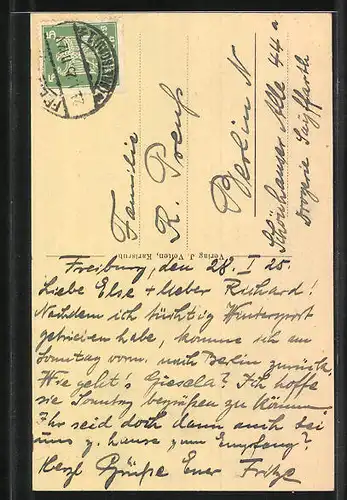 Familie
R. Preuß
Berlin N
Schönhauser Allee 44a
Drogerie Seyffarth
Verlag J. Velten, Karlsruhe
Freiburg, den 28. I 25.
Liebe Else + lieber Richard!
Nachdem ich tüchtig Wintersport
getrieben habe, komme ich am
Sonntag vorm. nach Berlin zurück.
Wie geht's Giesela? Ich hoffe
sie Sonntag begrüßen zu können.
Ihr seid doch dann auch bei
uns z. Hause zum Empfang?
Herzl. Grüße Euer Fritze